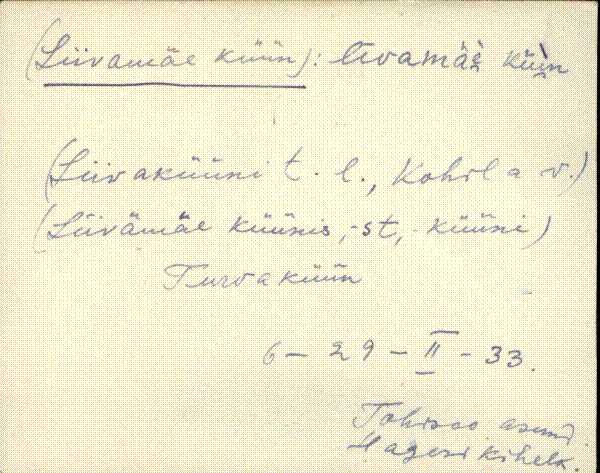 (Liivamäe küün): liivamäe küün
(Liivaküüni t. l., Kohila v.)
(Liivämäe küünis, -st, -küüni)
Turvaküün
6 - 29 - II - 33.
Tohisoo asund.
Hageri kihelk.